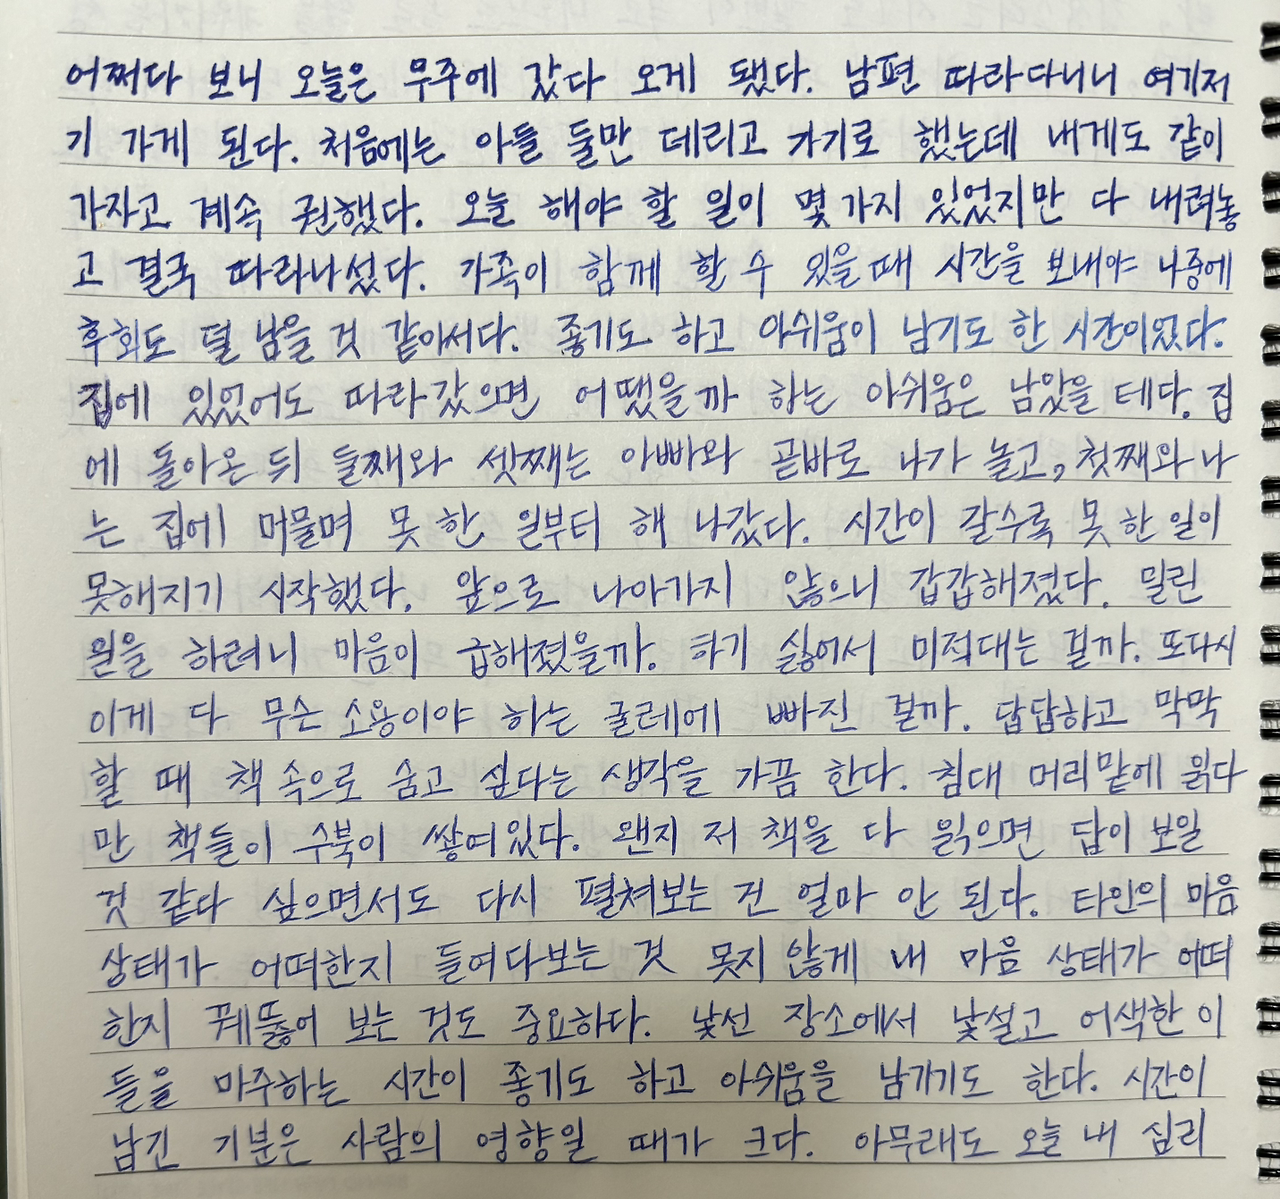 어쩌다 보니 오늘은 무주에 갔다 오게 됐다. 남편 따라다니니 여기저
기 가게 된다. 처음에는 아들 둘만 데리고 가기로 했는데 내게도 같이
가자고 계속 권했다. 오늘 해야 할 일이 몇 가지 있었지만 다 내려놓
고 결국 따라나섰다. 가족이 함께 할 수 있을 때 시간을 보내야 나중에
후회도 덜 남을 것 같아서다. 좋기도 하고 아쉬움이 남기도 한 시간이었다.
집에 있었어도 따라갔으면 어땠을까 하는 아쉬움은 남았을 테다. 집
에 돌아온 뒤 둘째와 셋째는 아빠와 곧바로 나가 놀고, 첫째와 나
는 집에 머물며 못 한 일부터 해 나갔다. 시간이 갈수록 못 한 일이
못해지기 시작했다. 앞으로 나아가지 않으니 갑갑해졌다. 밀린
일을 하려니 마음이 급해졌을까. 하기 싫어서 미적대는 걸까. 또다시
이게 다 무슨 소용이야 하는 굴레에 빠진 걸까. 답답하고 막막
할 때 책 속으로 숨고 싶다는 생각을 가끔 한다. 침대 머리맡에 읽다
만 책들이 수북이 쌓여있다. 왠지 저 책을 다 읽으면 답이 보일
것 같다 싶으면서도 다시 펼쳐보는 건 얼마 안 된다. 타인의 마음
상태가 어떠한지 들여다보는 것 못지 않게 내 마음 상태가 어떠
한지 꿰뚫어 보는 것도 중요하다. 낯선 장소에서 낯설고 어색한 이
들을 마주하는 시간이 좋기도 하고 아쉬움을 남기기도 한다. 시간이
남긴 기분은 사람의 영향일 때가 크다. 아무래도 오늘 내 심리